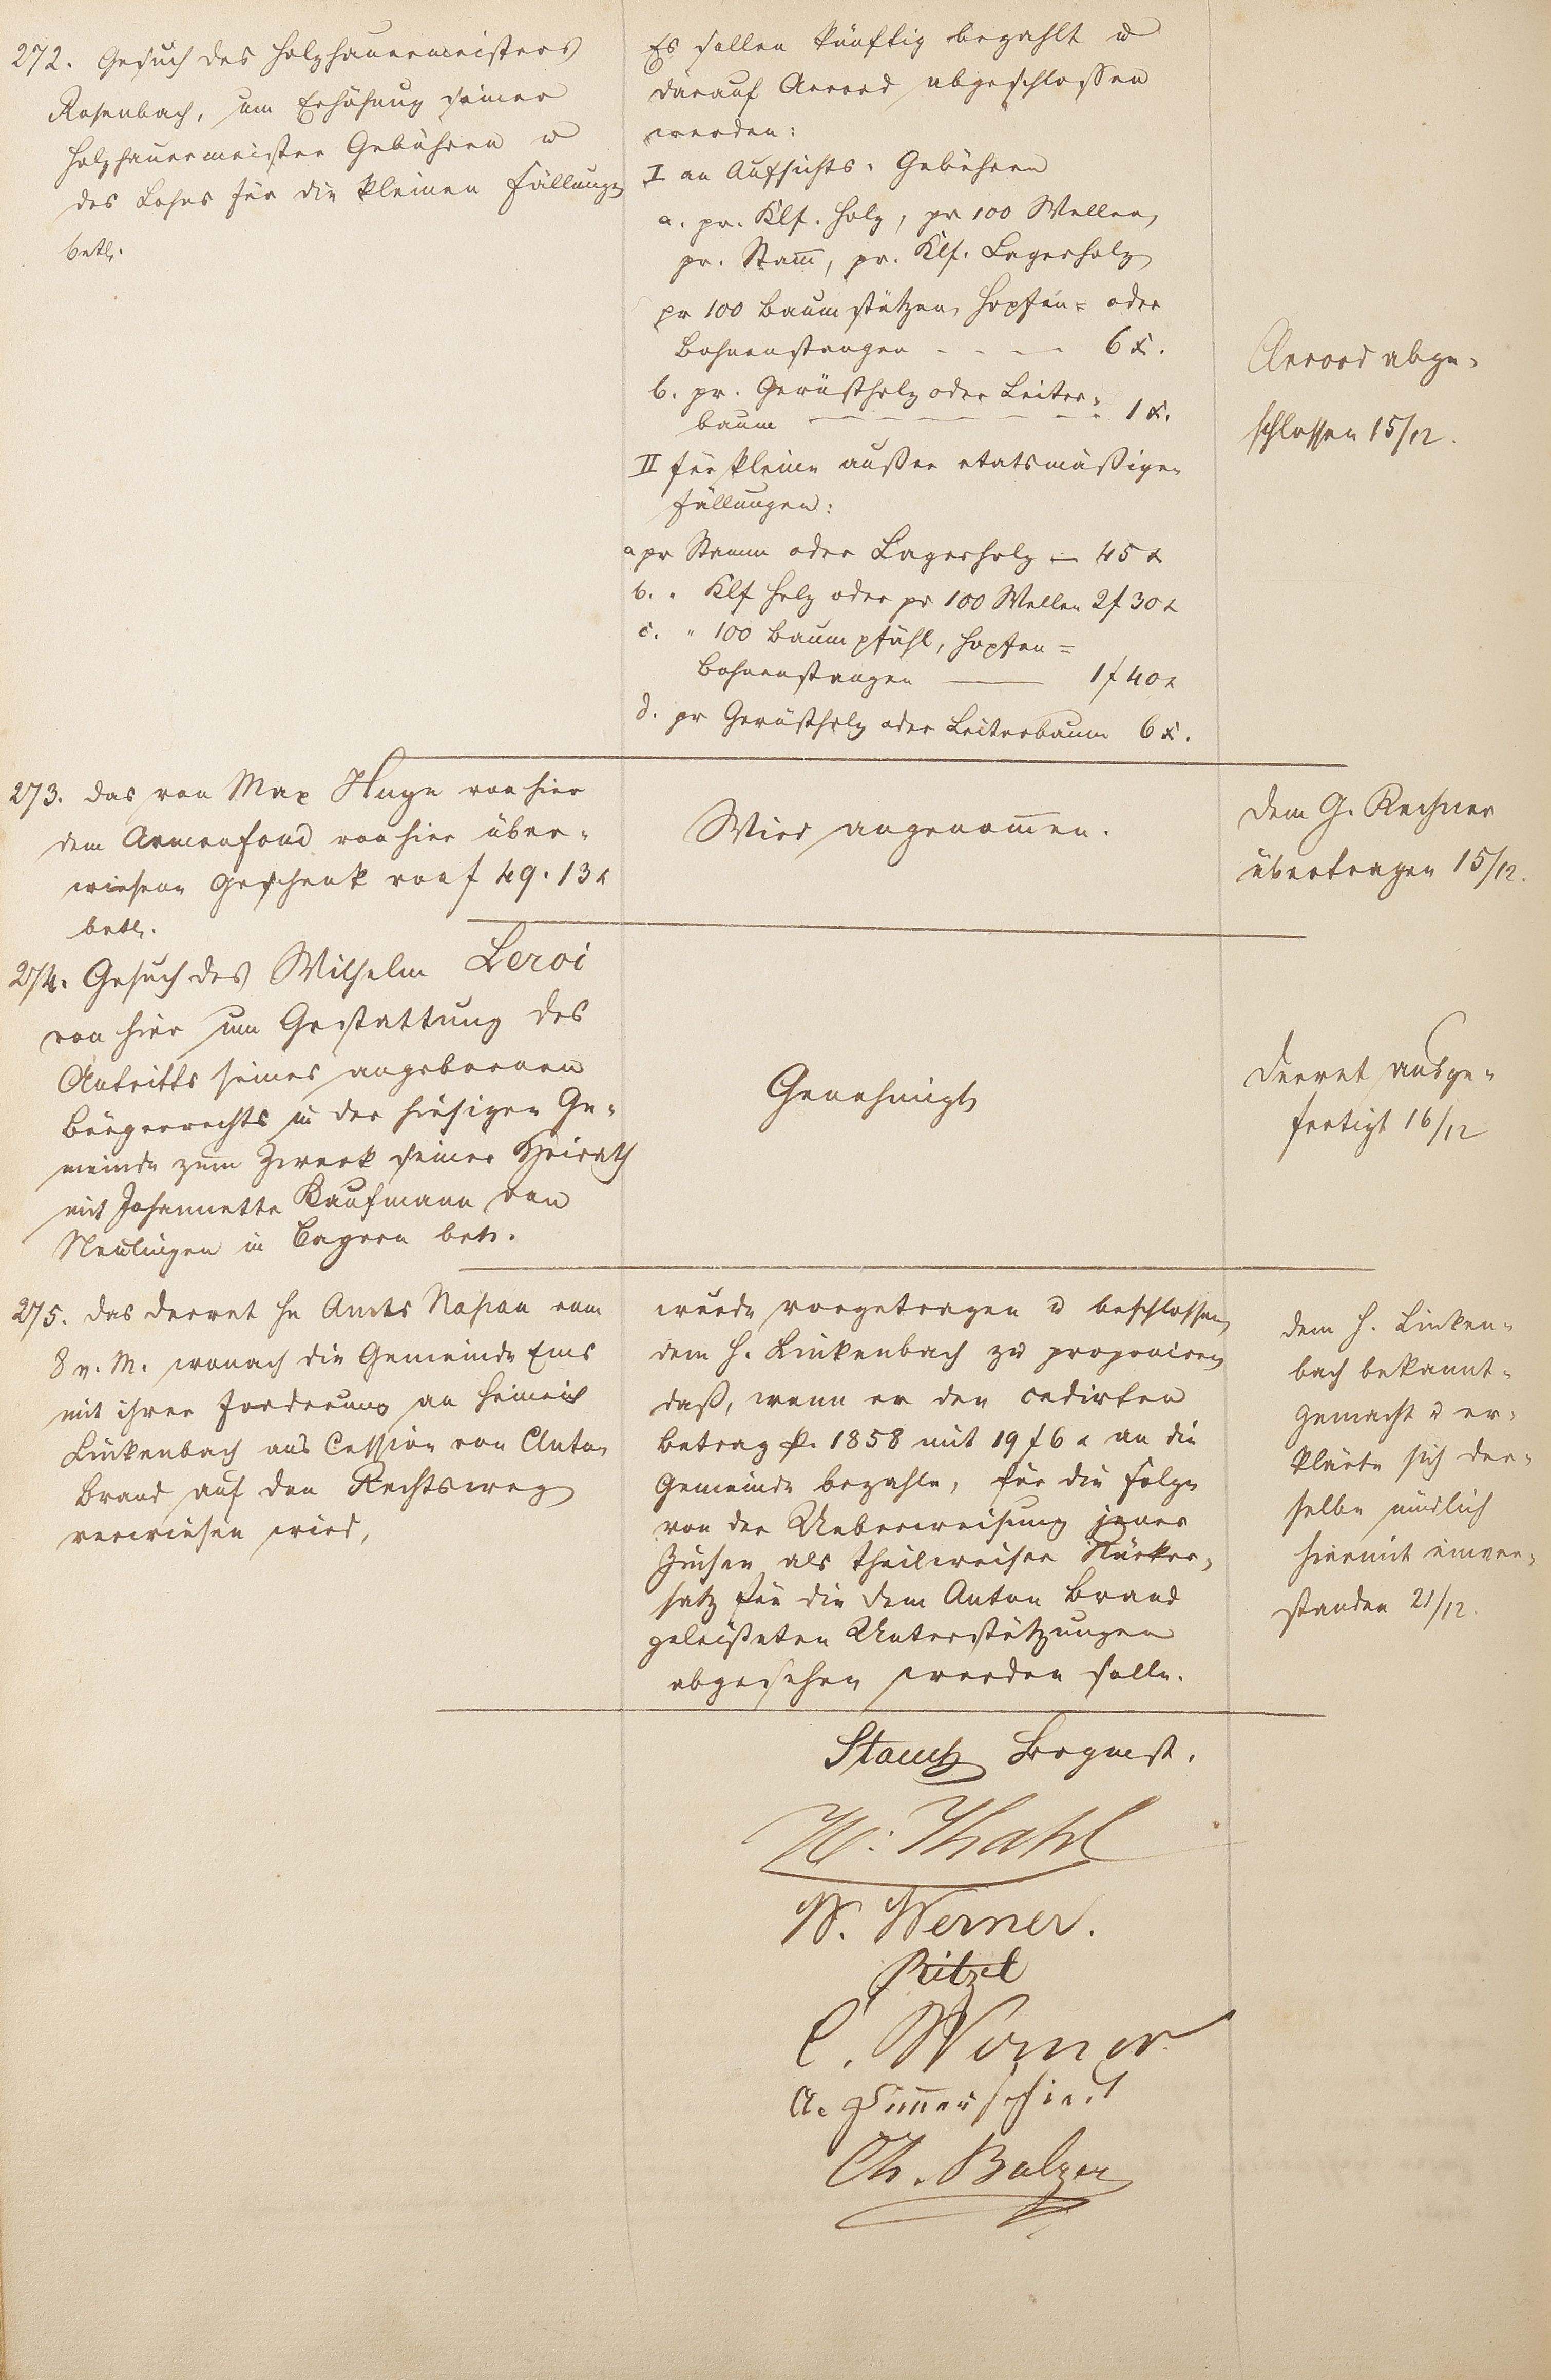 272. Gesuch des Holzhauermeisters
Rosenbach, um Erhöhung seiner
Holzhauermeister Gebühren u
des Lohns für die kleinen Fällungen
betr.
Es sollen künftig bezahlt u
darauf Accord abgeschlossen
werden:
I an Aufsichts-Gebühren
a. pr. Klf. Holz, pr 100 Wellen,
pr. Stam̅, pr. Klf. Lagerholz
pr 100 Baumstützen, Hopfen= oder
Bohnenstangen - - - 6 x.
b. pr. Gerüstholz oder Leiter=
baum - - - - - 1 x.
II für kleine außer etatsmäßige
Fällungen:
a pr Stamm oder Lagerholz — 45 x
b. " Klf Holz oder pr 100 Wellen 2 f 30 x
c. " 100 Baumpfähl, Hopfen=
Bohnenstangen —— 1 f 40 x
d. pr Gerüstholz oder Leiterbaum 6 x.
Accord abge-
schlossen 15/12.
273. Das von Max Huge von hier
dem Armenfond von hier über-
wiesene Geschenk von f 49. 13 x
betr.
Wird angenom̅en.
Dem G. Rechner
übertragen 15/12.
274. Gesuch des Wilhelm Leroi
von hier um Gestattung des
Antritts seines angebornen
Bürgerrechts in der hiesigen Ge-
meinde zum Zweck seiner Heirath
mit Johannette Kaufmann von
Neulingen in Bayern betr.
Genehmigt
Decret ausge-
fertigt 16/12
275. Das Decret Hn Amts Nassau vom
8 v. M. wonach die Gemeinde Ems
mit ihrer Forderung an Heinrich
Linkenbach aus Cession von Anton
Brand auf den Rechtsweg
verwiesen wird,
wurde vorgetragen u beschlossen,
dem H. Linkenbach zu proponiren
daß, wenn er den cedirten
Betrag p. 1858 mit 19 f 6 x an die
Gemeinde bezahle, für die Folge
von der Ueberweisung jener
Zinsen als theilweiser Rücker-
satz für die dem Anton Brand
geleisteten Unterstützungen
abgesehen werden solle.
Dem H. Linken-
bach bekannt-
gemacht u er-
klärte sich der-
selbe mündlich
hiermit einver-
standen 21/12.
Stauch Brgmst.
H. Thahl
W. Werner.
Ritzel
C. Werner
A. Zim̅erschied
Ch. Balzer